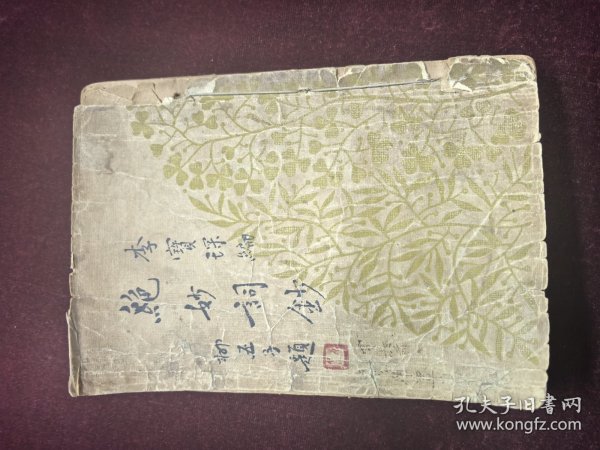 李寶琛編
絕妙詞鈔
柳亞子題
孔夫子旧書网
www.kongfz.com